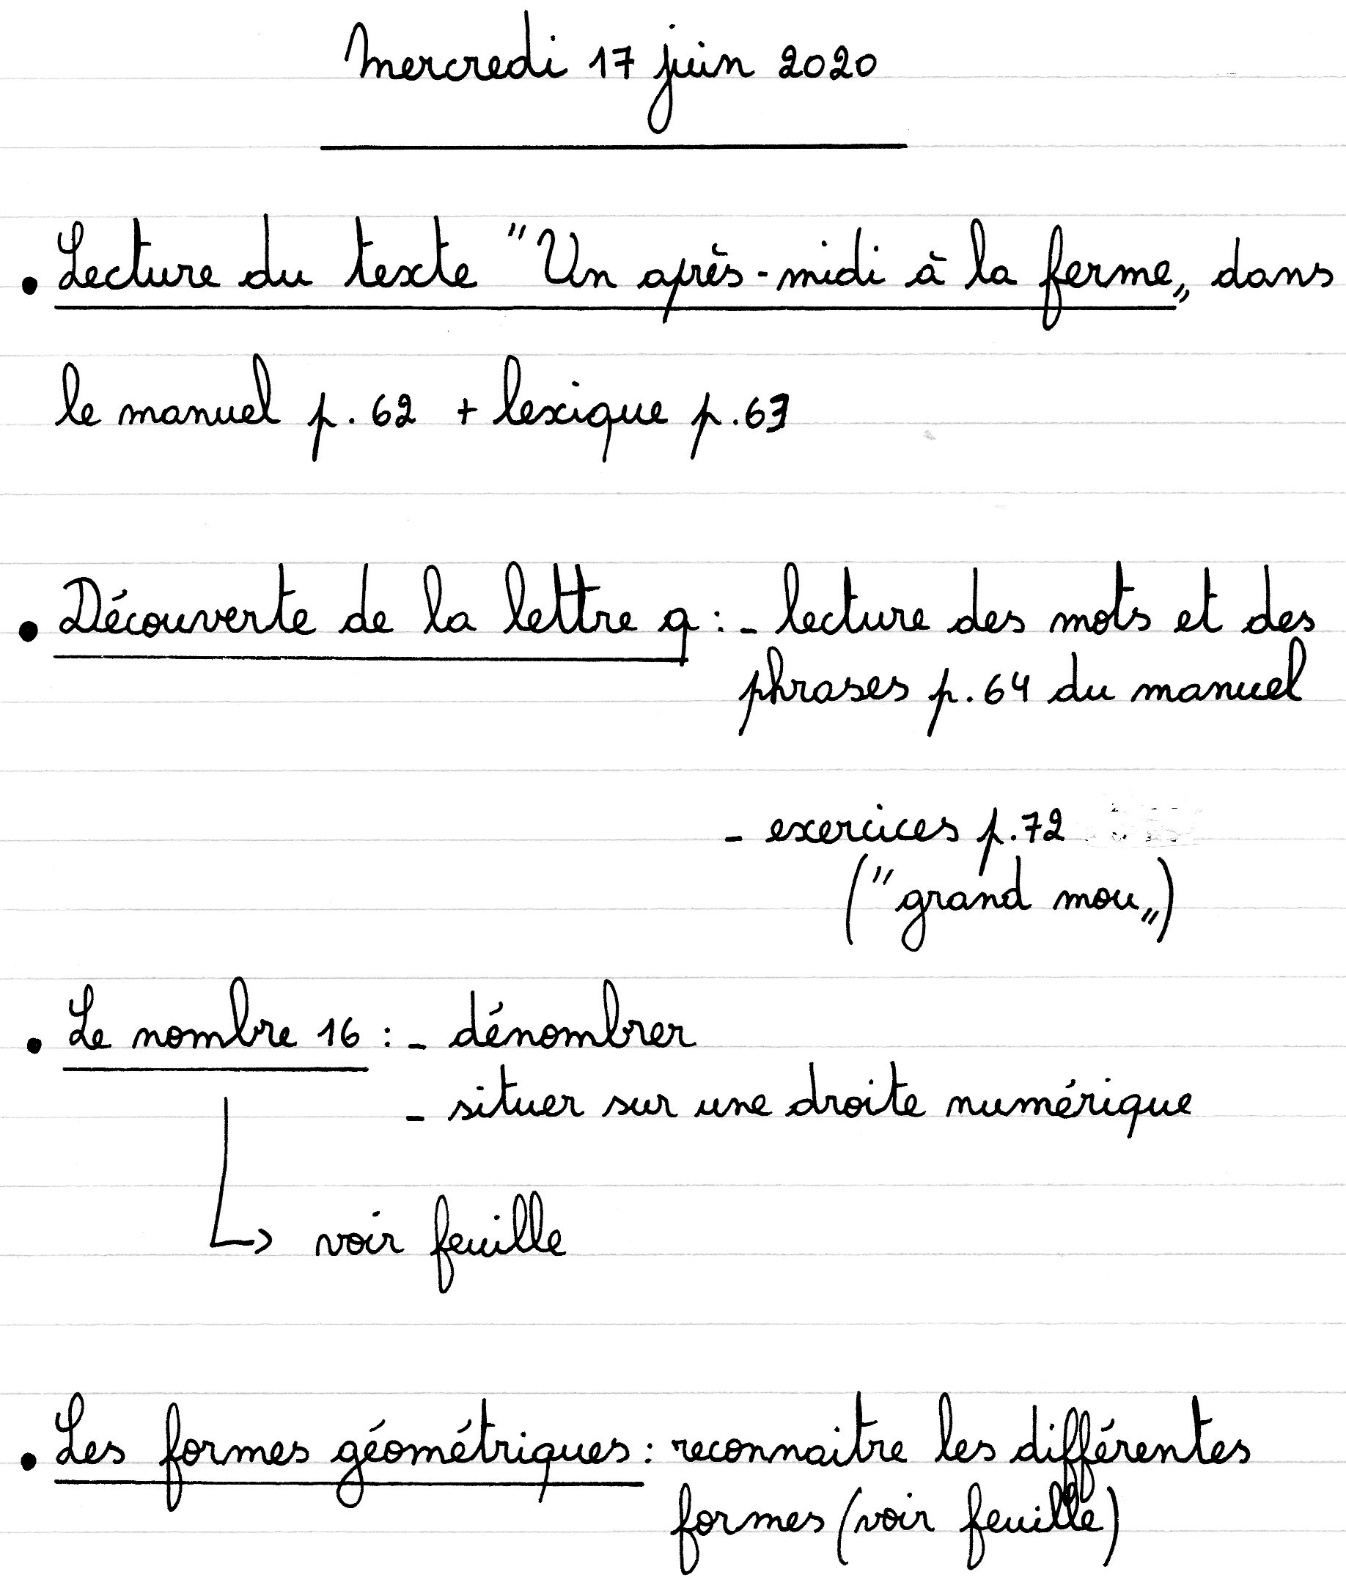 Mercredi 17 juin 2020
• Lecture du texte "Un après-midi à la ferme„ dans
le manuel p. 62 + lexique p.63
• Découverte de la lettre q : - lecture des mots et des
phrases p.64 du manuel
- exercices p.72
("grand mou„)
• Le nombre 16 : - dénombrer
- situer sur une droite numérique
↳ voir feuille
• Les formes géométriques : reconnaitre les différentes
formes (voir feuille)